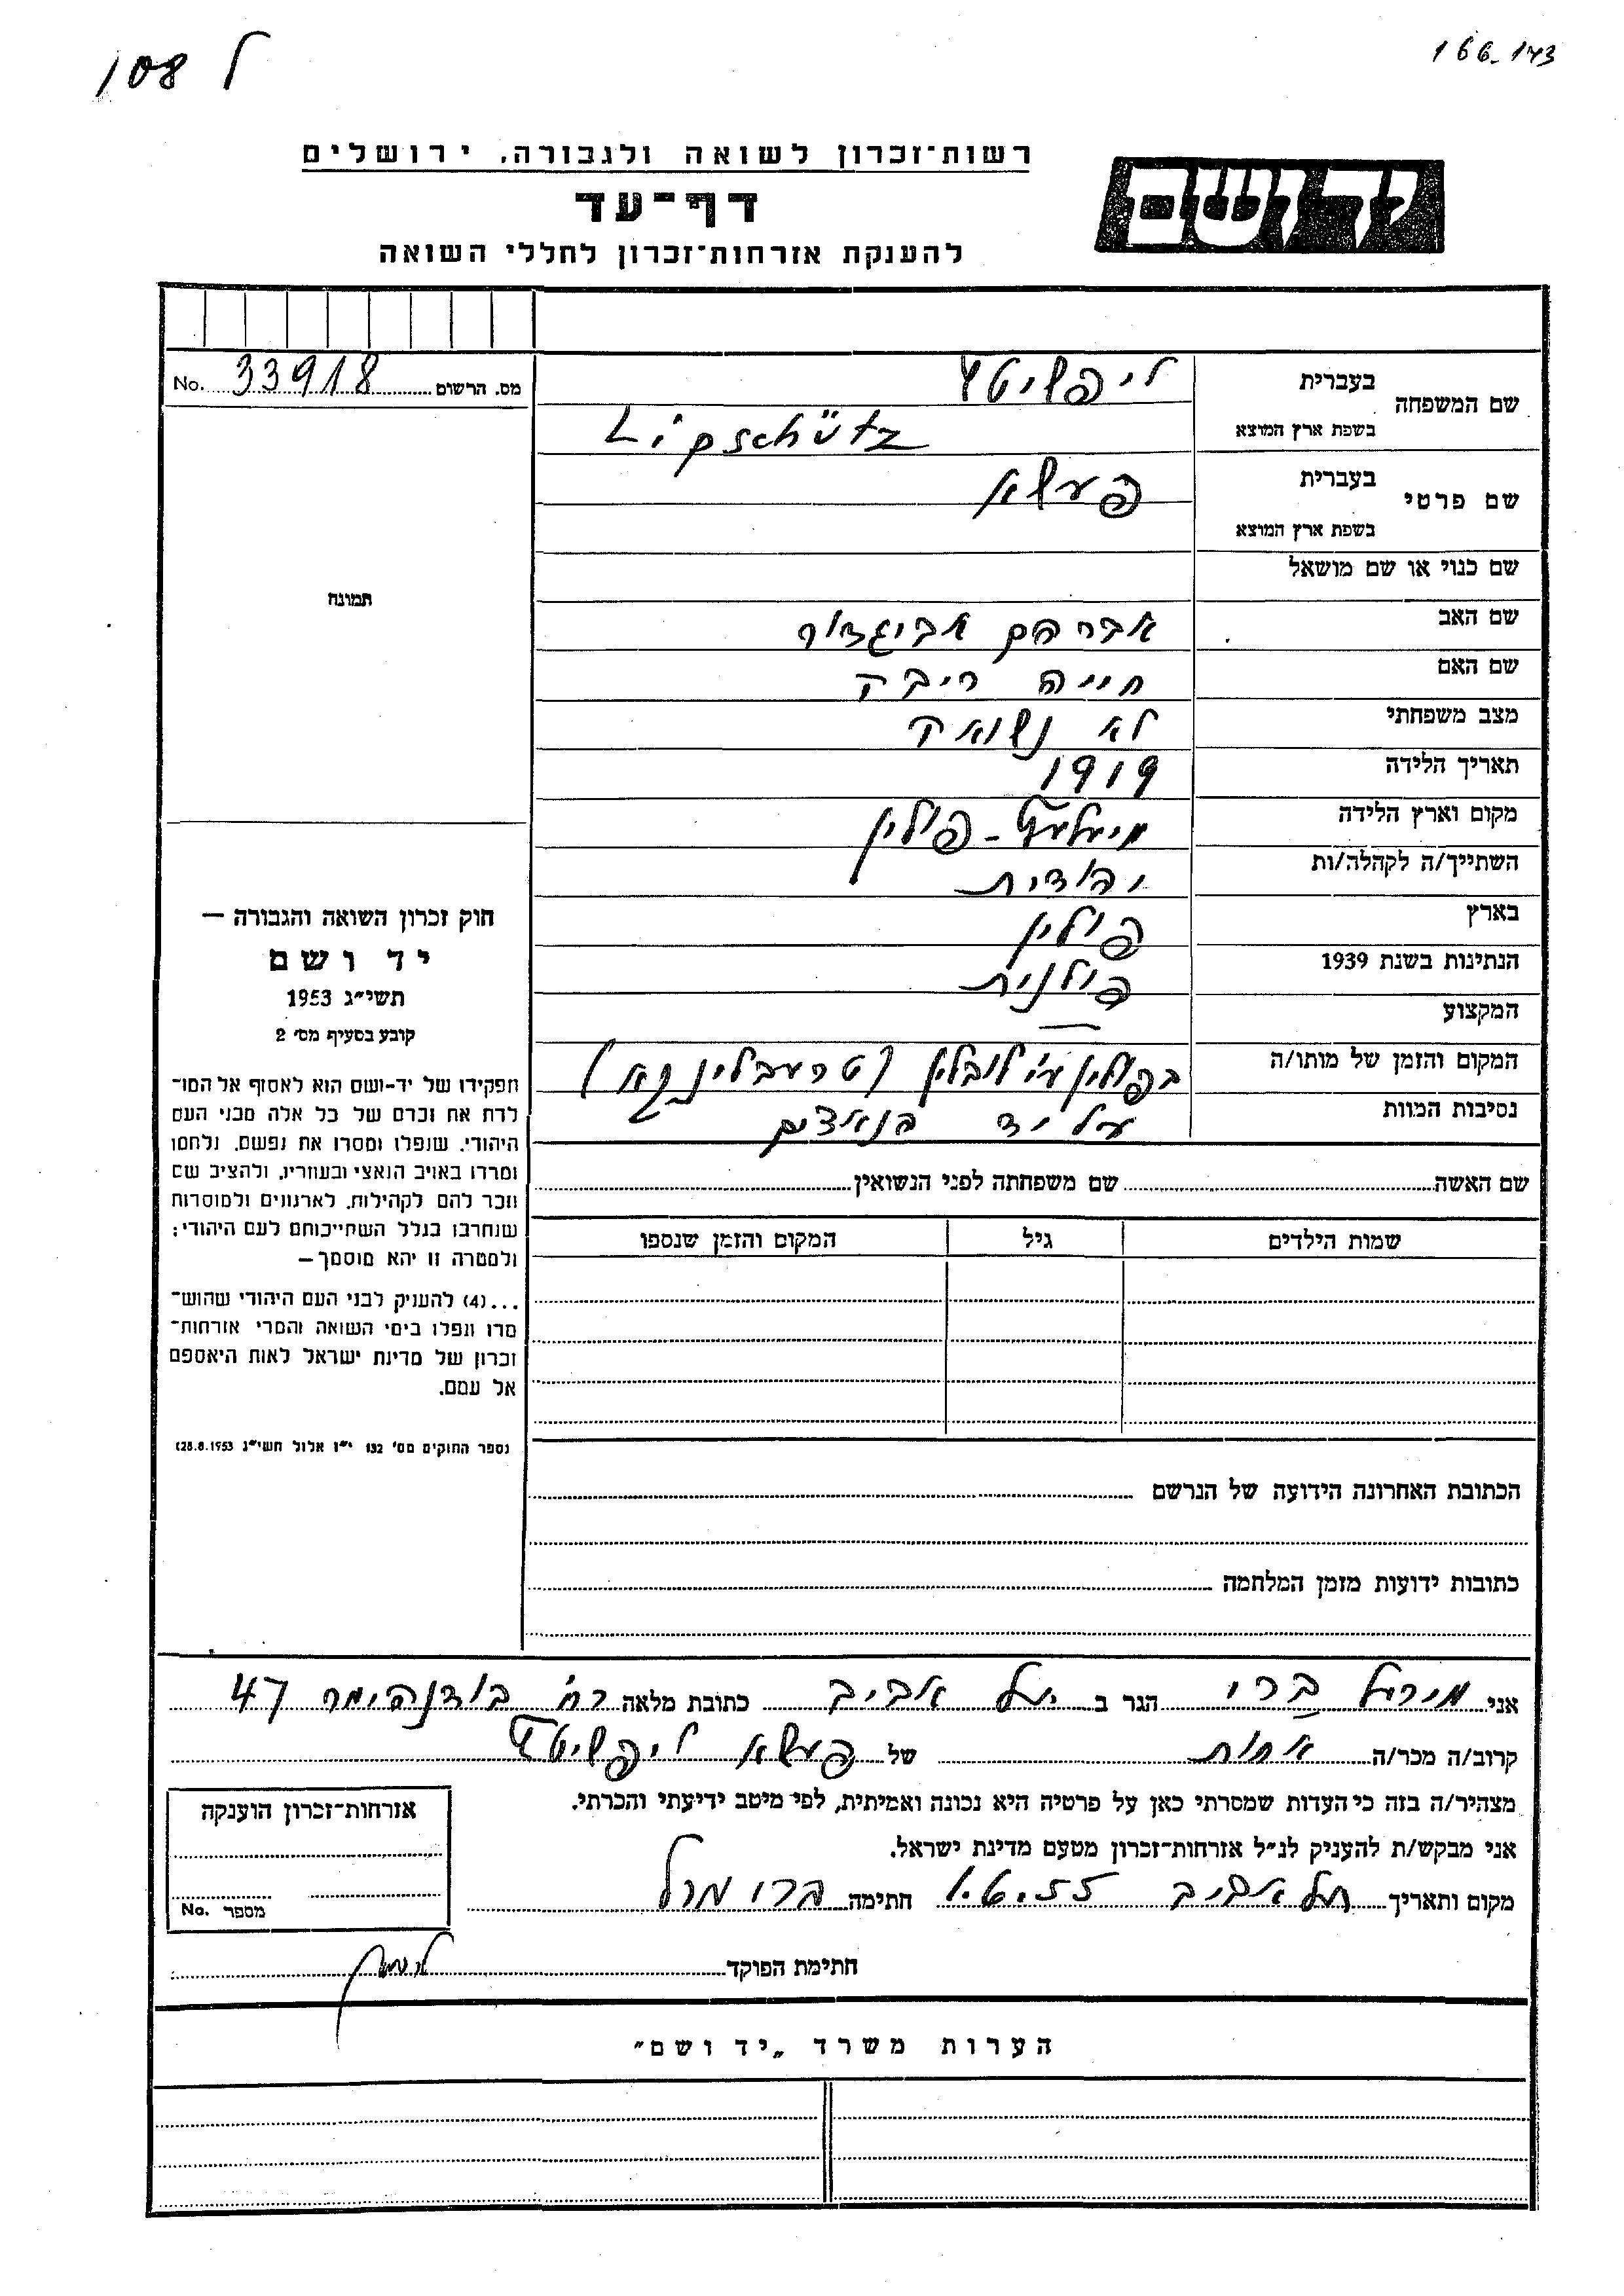 ל 108
166-143
רשות־זכרון לשואה ולגבורה, ירושלים
יד ושם
דף־עד
להענקת אזרחות־זכרון לחללי השואה
מס. הרשום 33918 No.
שם המשפחה
בעברית ליפשיטץ
בשפת ארץ המוצא Lipschütz
שם פרטי
בעברית פעשא
בשפת ארץ המוצא
שם כנוי או שם מושאל
תמונה
שם האב אברהם אביגדור
שם האם חייה ריבק
מצב משפחתי לא נשואה
תאריך הלידה 1919
מקום וארץ הלידה מיעלעץ - פולין
השתייך/ה לקהלה/ות יהודית
בארץ פולין
הנתינות בשנת 1939 פולנית
המקצוע —
המקום והזמן של מותו/ה בפולין ע"י לובלין (טרעבלינקא)
נסיבות המוות על יד הנאצים
חוק זכרון השואה והגבורה —
יד ושם
תשי"ג 1953
קובע בסעיף מס' 2
תפקידו של יד-ושם הוא לאסוף אל המו־
לדת את זכרם של כל אלה מבני העם
היהודי, שנפלו ומסרו את נפשם, נלחמו
ומרדו באויב הנאצי ובעוזריו, ולהציב שם
וזכר להם לקהילות, לארגונים ולמוסדות
שנחרבו בגלל השתייכותם לעם היהודי;
ולמטרה זו יהא מוסמך—
...(4) להעניק לבני העם היהודי שהוש־
מדו ונפלו בימי השואה והמרי אזרחות־
זכרון של מדינת ישראל לאות היאספם
אל עמם.
(ספר החוקים מס' 132 י"ז אלול תשי"ג 28.8.1953)
שם האשה שם משפחתה לפני הנשואין
שמות הילדים גיל המקום והזמן שנספו
הכתובת האחרונה הידועה של הנרשם
כתובות ידועות מזמן המלחמה
אני מירל ברו הגר ב תל אביב כתובת מלאה רח' בודנהימר 47
קרוב/ה מכר/ה אחות של פעשא ליפשיטץ
מצהיר/ה בזה כי העדות שמסרתי כאן על פרטיה היא נכונה ואמיתית, לפי מיטב ידיעתי והכרתי.
אני מבקש/ת להעניק לנ"ל אזרחות־זכרון מטעם מדינת ישראל.
מקום ותאריך תל אביב 1.6.55 חתימה ברו מרל
אזרחות־זכרון הוענקה
מספר No.
חתימת הפוקד
הערות משרד „יד ושם"